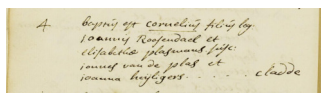 4 baptus est cornelius filius leg.
joannis Roosendael et
elisabethæ plasmans susc.
joannes van de plas et
joanna huijligers..... cladde